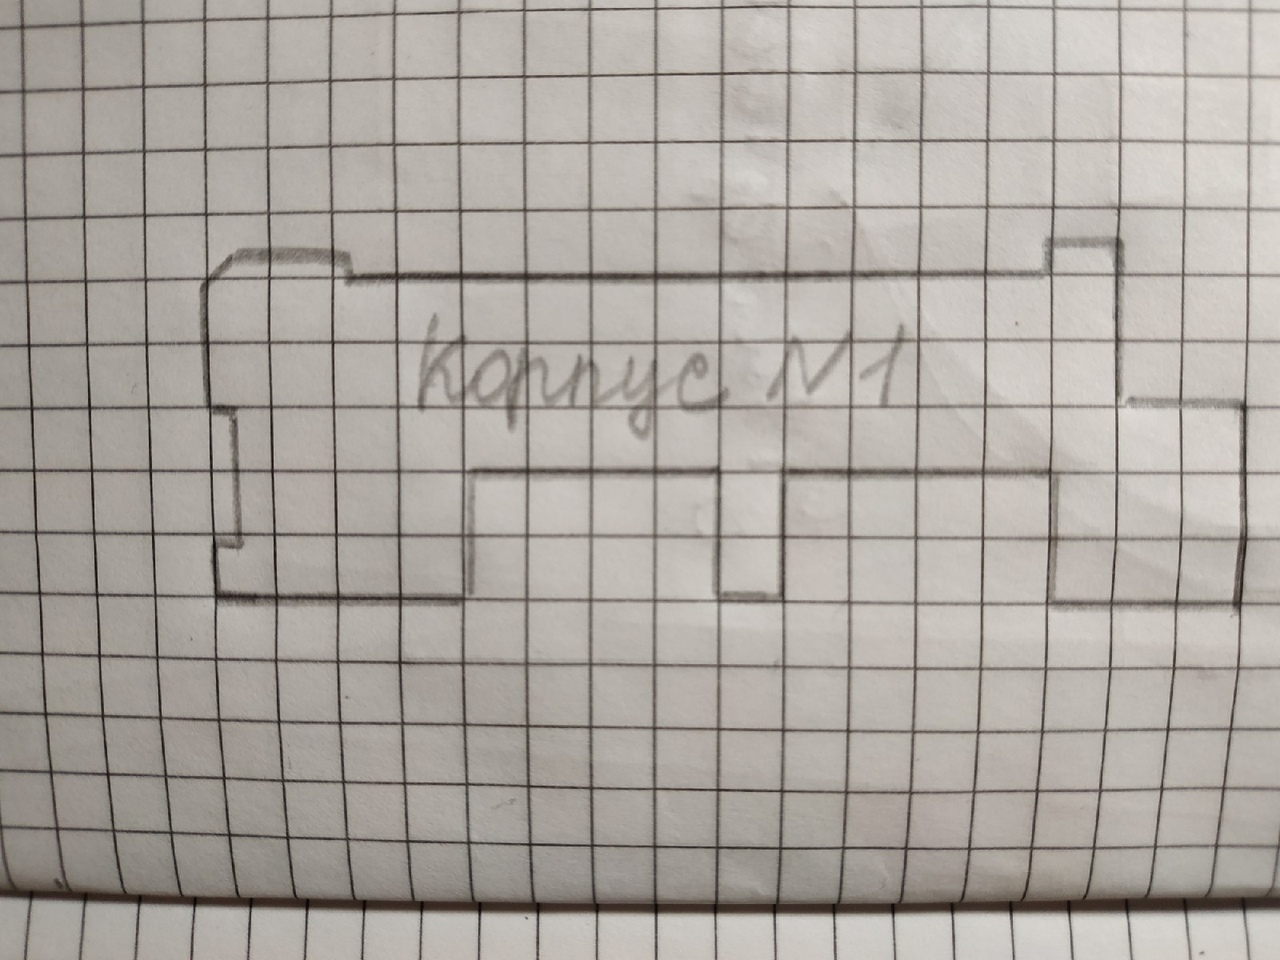 Корпус N1